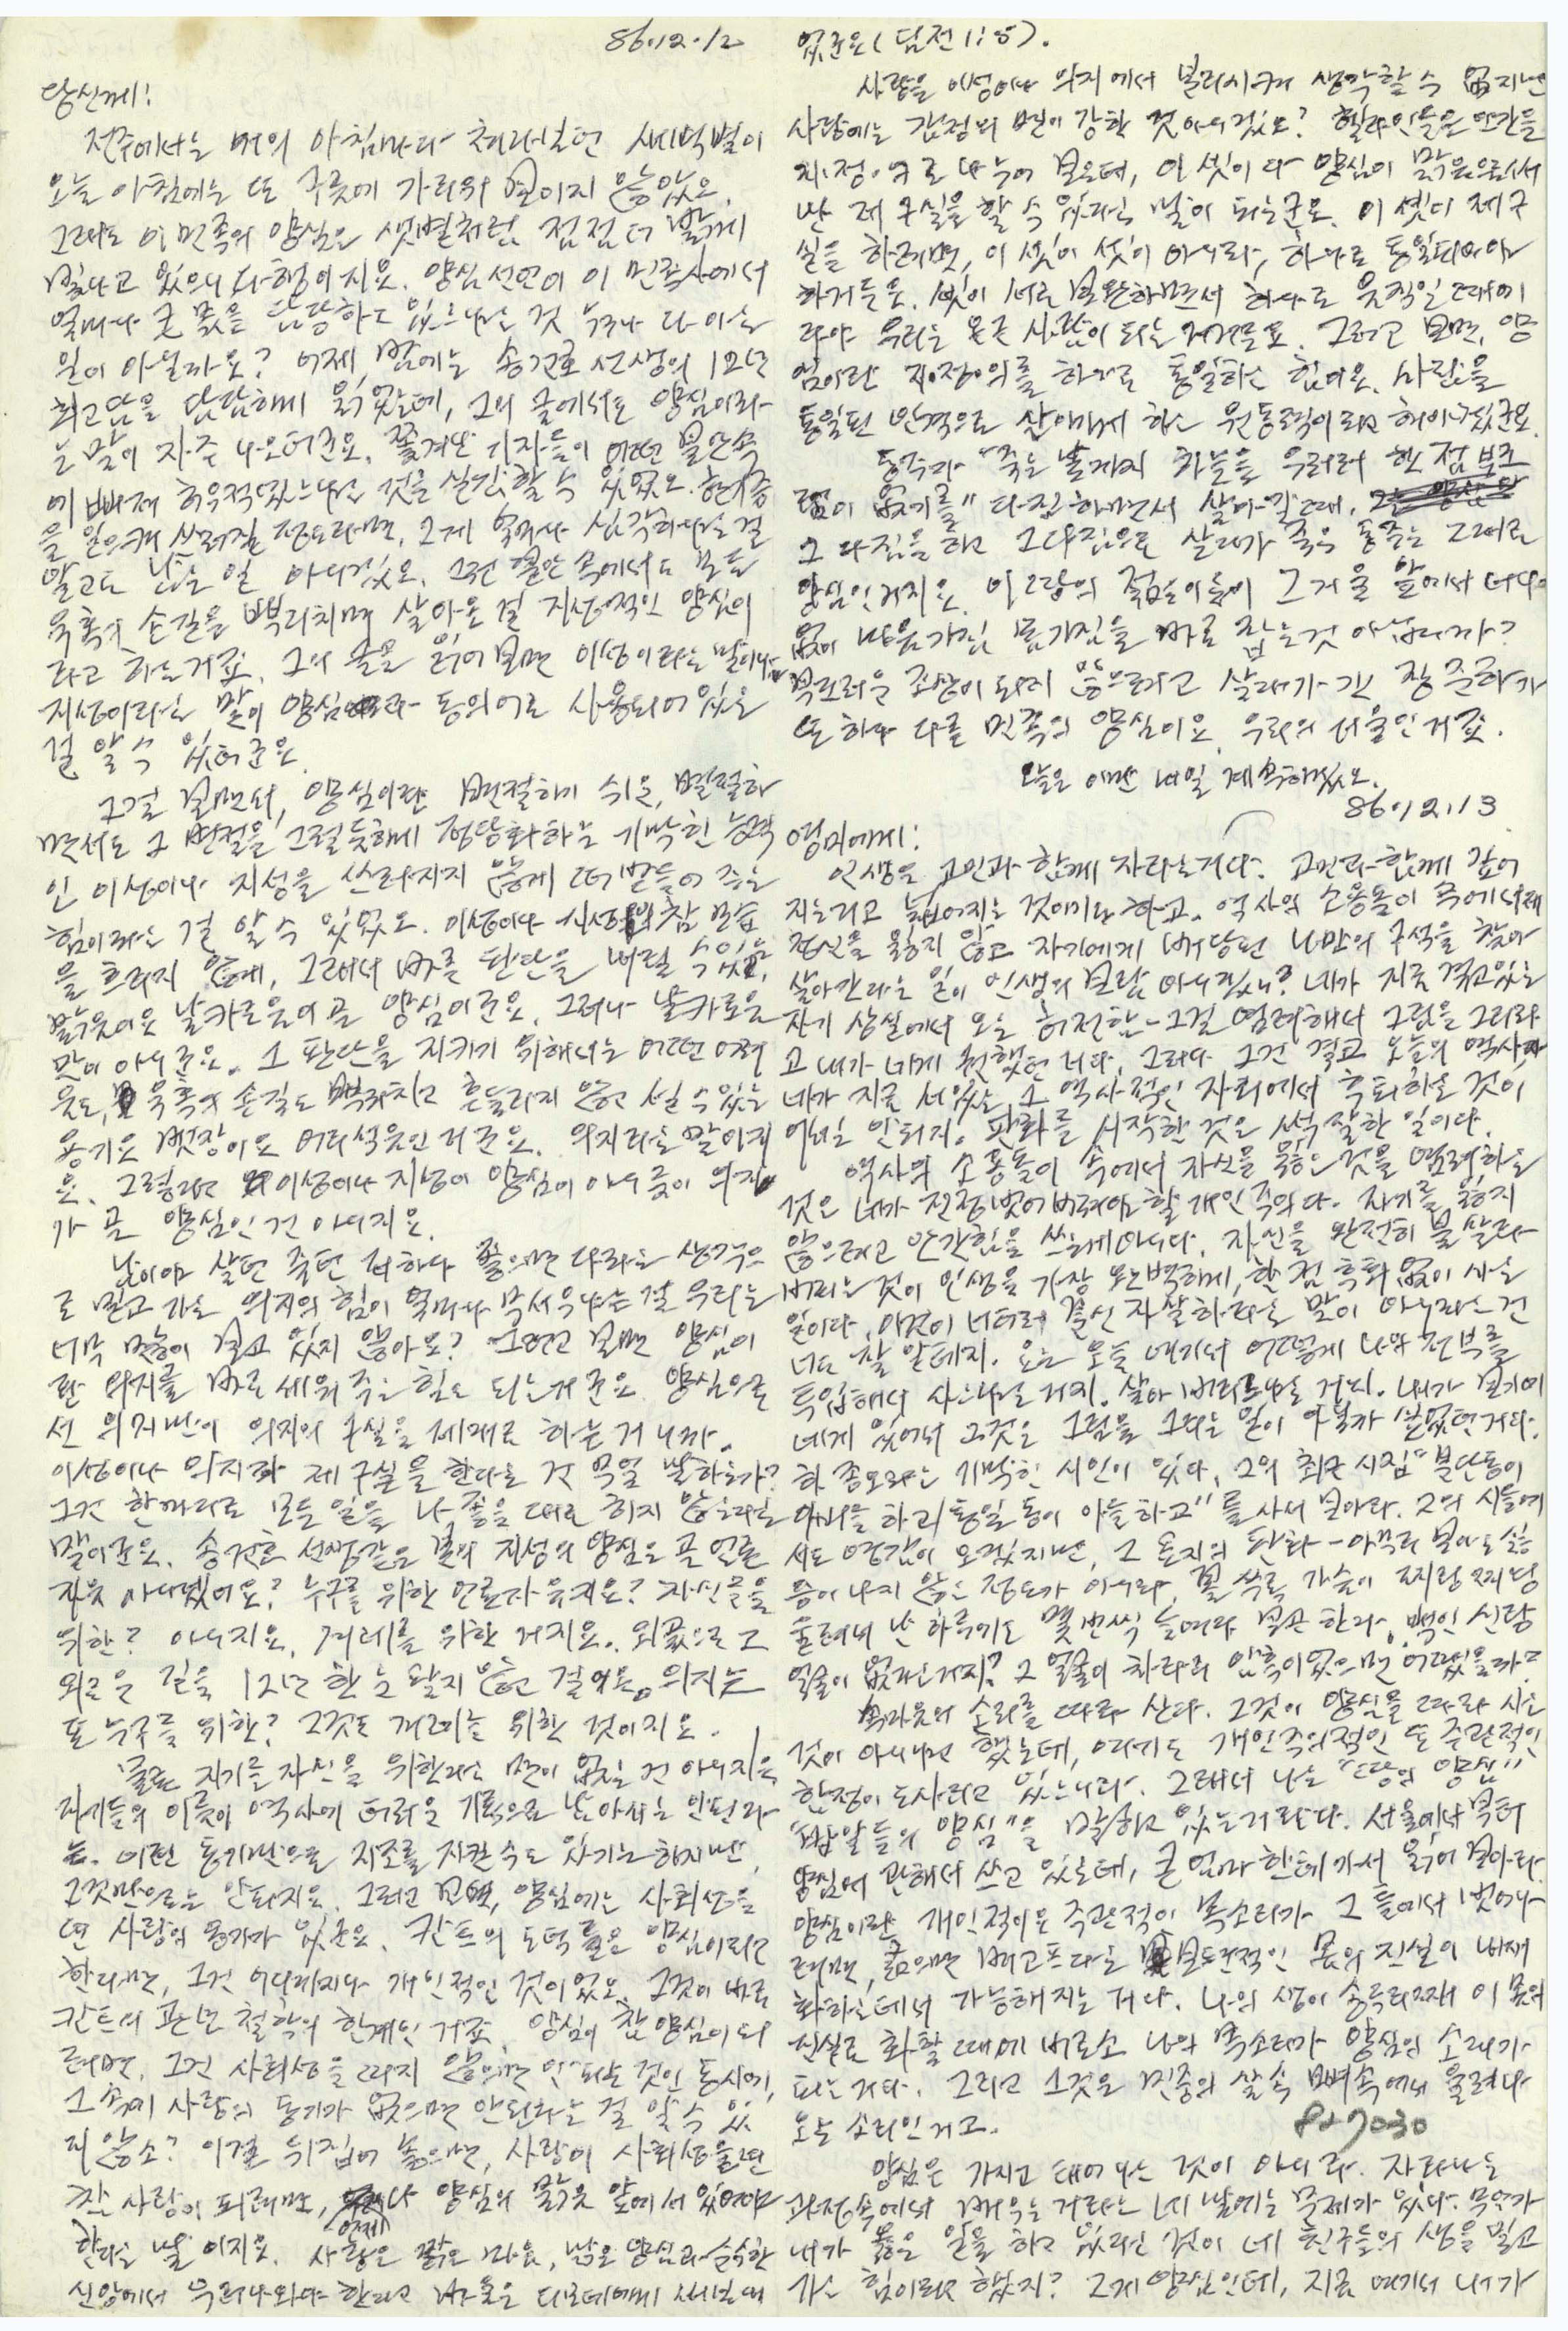 86.12.12
당신께!
전주에서는 거의 아침마다 쳐다보던 새벽별이
오늘 아침에는 또 구름에 가리워 보이지 않았오.
그래도 이 민족의 양심은 샛별처럼 점점 더 밝게
빛나고 있으니 다행이지요. 양심선언이 이 민족사에서
얼마나 큰 몫을 담당하고 있느냐는 것 누구나 다 아는
일이 아닐까요? 어제 밤에는 송건호 선생의 12년
최고답을 답답하게 읽었는데, 그의 글에서도 양심이라
는 말이 자주 나오더군요. 쫓겨난 기자들이 어떤 불안 속
에 빠져 허우적였느냐는 것을 실감할 수 있었오. 현기증
을 일으켜 쓰러질 정도라면, 그게 얼마나 심각하냐는 걸
말고도 남을 일 아니겠오. 그런 불안 속에서도 모든
유혹의 손길을 뿌리치며 살아온 걸 지성적인 양심이
라고 하는 거죠. 그의 글을 읽어 보면 이성이라는 말이나
지성이라는 말이 양심과 동의어로 사용되어 있는
걸 알 수 있더군요.
그걸 보면서, 양심이란 변절하기 쉬운, 변절하
면서도 그 변절을 그럴듯하게 정당화하는 기막힌 능력
인 이성이나 지성을 쓰러지지 않게 떠받들어 주는
힘이라는 걸 알 수 있었오. 이성이나 지성의 참 모습
을 흐리지 않게, 그래서 바른 판단을 내릴 수 있는,
맑음이요 날카로움이 곧 양심이군요. 그러나 날카로움
만이 아니군요. 그 판단을 지키기 위해서는 어떤 어려
움도, 유혹의 손길도 뿌리치고 흔들리지 않고 설 수 있는
용기요 뱃장이요 어리석음인 거군요. 의지라는 말이지
요. 그렇다고 이성이나 지성이 양심이 아니듯이 의지
가 곧 양심인 건 아니지요.
남이야 살던 죽던 나 하나 좋으면 다라는 생각으
로 밀고 가는 의지의 힘이 얼마나 무서우냐는 걸 우리는
너무 많이 겪고 있지 않아요? 그러고 보면 양심이
란 의지를 바로 세워 주는 힘도 되는 거군요. 양심으로
선 의지만이 의지의 구실을 제대로 하는 거니까.
이성이나 의지가 제 구실을 한다는 것 무얼 말하는가?
그건 한마디로 모든 일을 나 좋을 대로 하지 않는다는
말이군요. 송건호 선생같은 분의 지성의 양심은 곧 언론
자유 아니겠어요? 누구를 위한 언론자유지요? 자신들을
위한? 아니지요. 겨레를 위한 거지요. 외곬으로 그
외로운 길을 12년 한 눈 팔지 않고 걸어온 의지는
또 누구를 위한? 그것도 겨레를 위한 것이지요.
물론 자기들 자신을 위한다는 면이 없는 건 아니지요.
자기들의 이름이 역사에 더러운 기록으로 남아서는 안된다
는. 이런 동기만으로 지조를 지킬 수도 있기는 하지만,
그것만으로는 안되지요. 그러고 보면, 양심에는 사회성을
띤 사랑의 동기가 있군요. 칸트의 도덕률을 양심이라고
한다면, 그건 어디까지나 개인적인 것이었오. 그것이 바로
칸트의 관념 철학의 한계인 거죠. 양심이 참 양심이 되
려면, 그건 사회성을 띠지 않으면 안되는 것인 동시에,
그 속에 사랑의 동기가 없으면 안된다는 걸 알 수 있
지 않소? 이걸 뒤집어 놓으면, 사랑이 사회성을 띤
참 사랑이 되려면, 언제나 양심의 맑음 앞에 서 있어야
한다는 말이지요. 사랑은 맑은 마음, 맑은 양심과 순수한
신앙에서 우러나와야 한다고 바울은 디모데에게 써보내
있군요(딤전1:5).
사랑을 이성이나 의지에서 분리시켜 생각할 수 없지만
사랑에는 감정의 면이 강한 것 아니겠오? 헬라인들은 인간을
지·정·의로 나누어 보는데, 이 셋이 다 양심이 맑음으로서
만 제 구실을 할 수 있다는 말이 되는군요. 이 셋이 제구
실을 하려면, 이 셋이 셋이 아니라, 하나로 통일되어야
하거든요. 셋이 서로 보완하면서 하나로 움직일 때에
라야 우리는 온전 사람이 되는 거거든요. 그러고 보면, 양
심이란 지·정·의를 하나로 통일하는 힘이요. 사람을
통일된 인격으로 살아가게 하는 원동력이라고 해야겠군요.
동주가 "죽는 날까지 하늘을 우러러 한 점 부끄
럼이 없기를" 다짐하면서 살아갈 때,
그 다짐을 하고 그 다짐으로 살다가 죽은 동주는 그대로
양심인 거지요. 이 땅의 젊은이들이 그 거울 앞에서 너나
없이 마음가짐 몸가짐을 바로 잡는 것 아닙니까?
부끄러운 조상이 되지 않으려고 살다가 간 장준하가
또 하나 다른 민족의 양심이요. 우리의 거울인 거죠.
오늘은 이만 내일 계속하겠오.
86.12.13
영미에게!
인생은 고민과 함께 자라는거다. 고민과 함께 깊어
지는 거고 넓어지는 것이기도 하고. 역사의 소용돌이 속에서
정신을 잃지 않고 자기에게 배당된 나만의 구석을 찾아
살아간다는 일이 인생의 보람 아니겠니? 네가 지금 겪고 있는
자기 상실에서 오는 허전함-그걸 염려해서 그림을 그리라
고 내가 네게 권했던 거다. 그러나 그건 결코 오늘의 역사,
네가 지금 서있는 그 역사적인 자리에서 후퇴하는 것이
어서는 안되지. 판화를 시작한 것은 썩 잘한 일이다.
역사의 소용돌이 속에서 자신을 잃는 것을 염려하는
것은 네가 진정 벗어버려야 할 개인주의다. 자기를 잃지
않으려고 안간힘을 쓰는게 아니다. 자신을 완전히 불살라
버리는 것이 인생을 가장 완벽하게, 한 점 후회 없이 사는
일이다. 이것이 너더러 분신 자살하라는 말이 아니라는 건
너도 잘 알테지. 요는 오늘 여기서 어떻게 나의 전부를
투입해서 사느냐는 거지. 살아 버리느냐는 거지. 내가 보기에
네게 있어서 그것은 그림을 그리는 일이 아닐까 싶었던거다.
하종오라는 기막힌 시인이 있다. 그의 최근 시집 "분단동이
아비들하고 통일동이 아들하고"를 사서 보아라. 그의 시들에
서도 영감이 오겠지만, 그 표지의 판화-아무리 보아도 싫
증이 나지 않는 정도가 아니라, 볼수록 가슴이 찌렁찌렁
울려서 난 하루에도 몇번씩 들여다 보곤 한다. 백인 신랑
얼굴이 없잖은거지? 그 얼굴이 차라리 암흑이었으면 어땠을까?
목마름의 소리를 따라 산다. 그것이 양심을 따라 사는
것이 아니냐고 했는데, 여기도 개인주의적인 또 주관적인
함정이 도사리고 있느니라. 그래서 나는 "땅의 양심"
"밥알들의 양심"을 말하고 있는거란다. 서울에서부터
양심에 관해서 쓰고 있는데, 큰엄마한테 가서 읽어 보아라.
양심이란 개인적이요 주관적인 목소리가 그 틀에서 벗어나
려면, 굶으면 배고프다는 보편적인 몸의 진실이 내재
화하는데서 가능해지는 거다. 나의 생이 송두리째 이 몸의
진실로 화할 때에 비로소 나의 목소리가 양심의 소리가
되는 거다. 그리고 그것은 민중의 살 속 뼈 속에서 울려나
오는 소리인 거고.
827030
양심은 가지고 태어나는 것이 아니라. 자라나는
과정 속에서 배우는 거라는 네 말에는 문제가 있다. 무언가
내가 옳은 일을 하고 있다는 것이 네 친구들의 생을 밀고
가는 힘이라고 했지? 그게 양심인데, 지금 여기서 내가